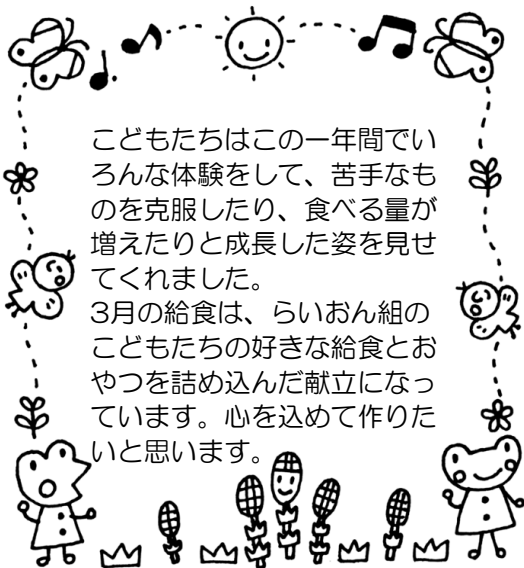 こどもたちはこの一年間でい
ろんな体験をして、苦手なも
のを克服したり、食べる量が
増えたりと成長した姿を見せ
てくれました。
3月の給食は、らいおん組の
こどもたちの好きな給食とお
やつを詰め込んだ献立になっ
ています。心を込めて作りた
いと思います。